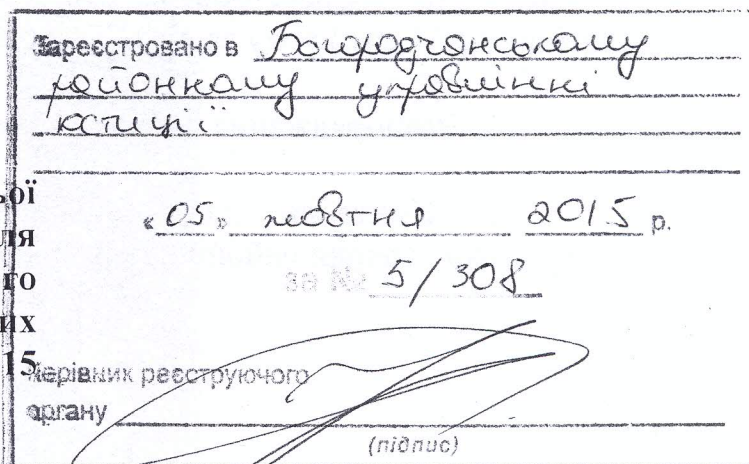 Зареєстровано в Богородчанському
районному управлінні
юстиції
ьої
ля
го
их
15
«05» жовтня 2015 р.
за № 5/308
Керівник реєструючого
органу
(підпис)